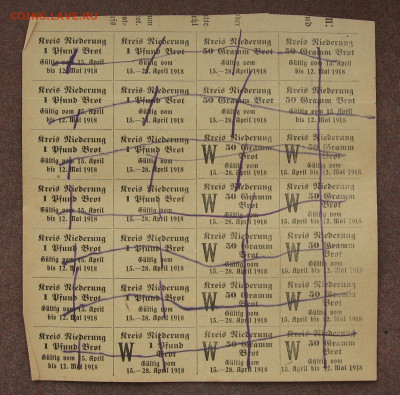 COINS.LAVE.RU
Kreis Niederung Kreis Niederung Kreis Niederung Kreis Niederung
1 Pfund Brot 1 Pfund Brot 50 Gramm Brot 50 Gramm Brot
Gültig vom 15. April Gültig vom Gültig vom Gültig vom 15. April
bis 12. Mai 1918 15.—28. April 1918 15.—28. April 1918 bis 12. Mai 1918
Kreis Niederung Kreis Niederung Kreis Niederung Kreis Niederung
1 Pfund Brot 1 Pfund Brot 50 Gramm Brot 50 Gramm Brot
Gültig vom 15. April Gültig vom Gültig vom Gültig vom 15. April
bis 12. Mai 1918 15.—28. April 1918 15.—28. April 1918 bis 12. Mai 1918
Kreis Niederung Kreis Niederung Kreis Niederung Kreis Niederung
1 Pfund Brot 1 Pfund Brot W 50 Gramm Brot W 50 Gramm Brot
Gültig vom 15. April Gültig vom Gültig vom Gültig vom 15. April
bis 12. Mai 1918 15.—28. April 1918 15.—28. April 1918 bis 12. Mai 1918
Kreis Niederung Kreis Niederung Kreis Niederung Kreis Niederung
1 Pfund Brot 1 Pfund Brot W 50 Gramm Brot W 50 Gramm Brot
Gültig vom 15. April Gültig vom Gültig vom Gültig vom 15. April
bis 12. Mai 1918 15.—28. April 1918 15.—28. April 1918 bis 12. Mai 1918
Kreis Niederung Kreis Niederung Kreis Niederung Kreis Niederung
1 Pfund Brot 1 Pfund Brot W 50 Gramm Brot W 50 Gramm Brot
Gültig vom 15. April Gültig vom Gültig vom Gültig vom 15. April
bis 12. Mai 1918 15.—28. April 1918 15.—28. April 1918 bis 12. Mai 1918
Kreis Niederung Kreis Niederung Kreis Niederung Kreis Niederung
1 Pfund Brot 1 Pfund Brot W 50 Gramm Brot W 50 Gramm Brot
Gültig vom 15. April Gültig vom Gültig vom Gültig vom 15. April
bis 12. Mai 1918 15.—28. April 1918 15.—28. April 1918 bis 12. Mai 1918
Kreis Niederung Kreis Niederung Kreis Niederung Kreis Niederung
1 Pfund Brot W 1 Pfund Brot W 50 Gramm Brot W 50 Gramm Brot
Gültig vom 15. April Gültig vom Gültig vom Gültig vom 15. April
bis 12. Mai 1918 15.—28. April 1918 15.—28. April 1918 bis 12. Mai 1918